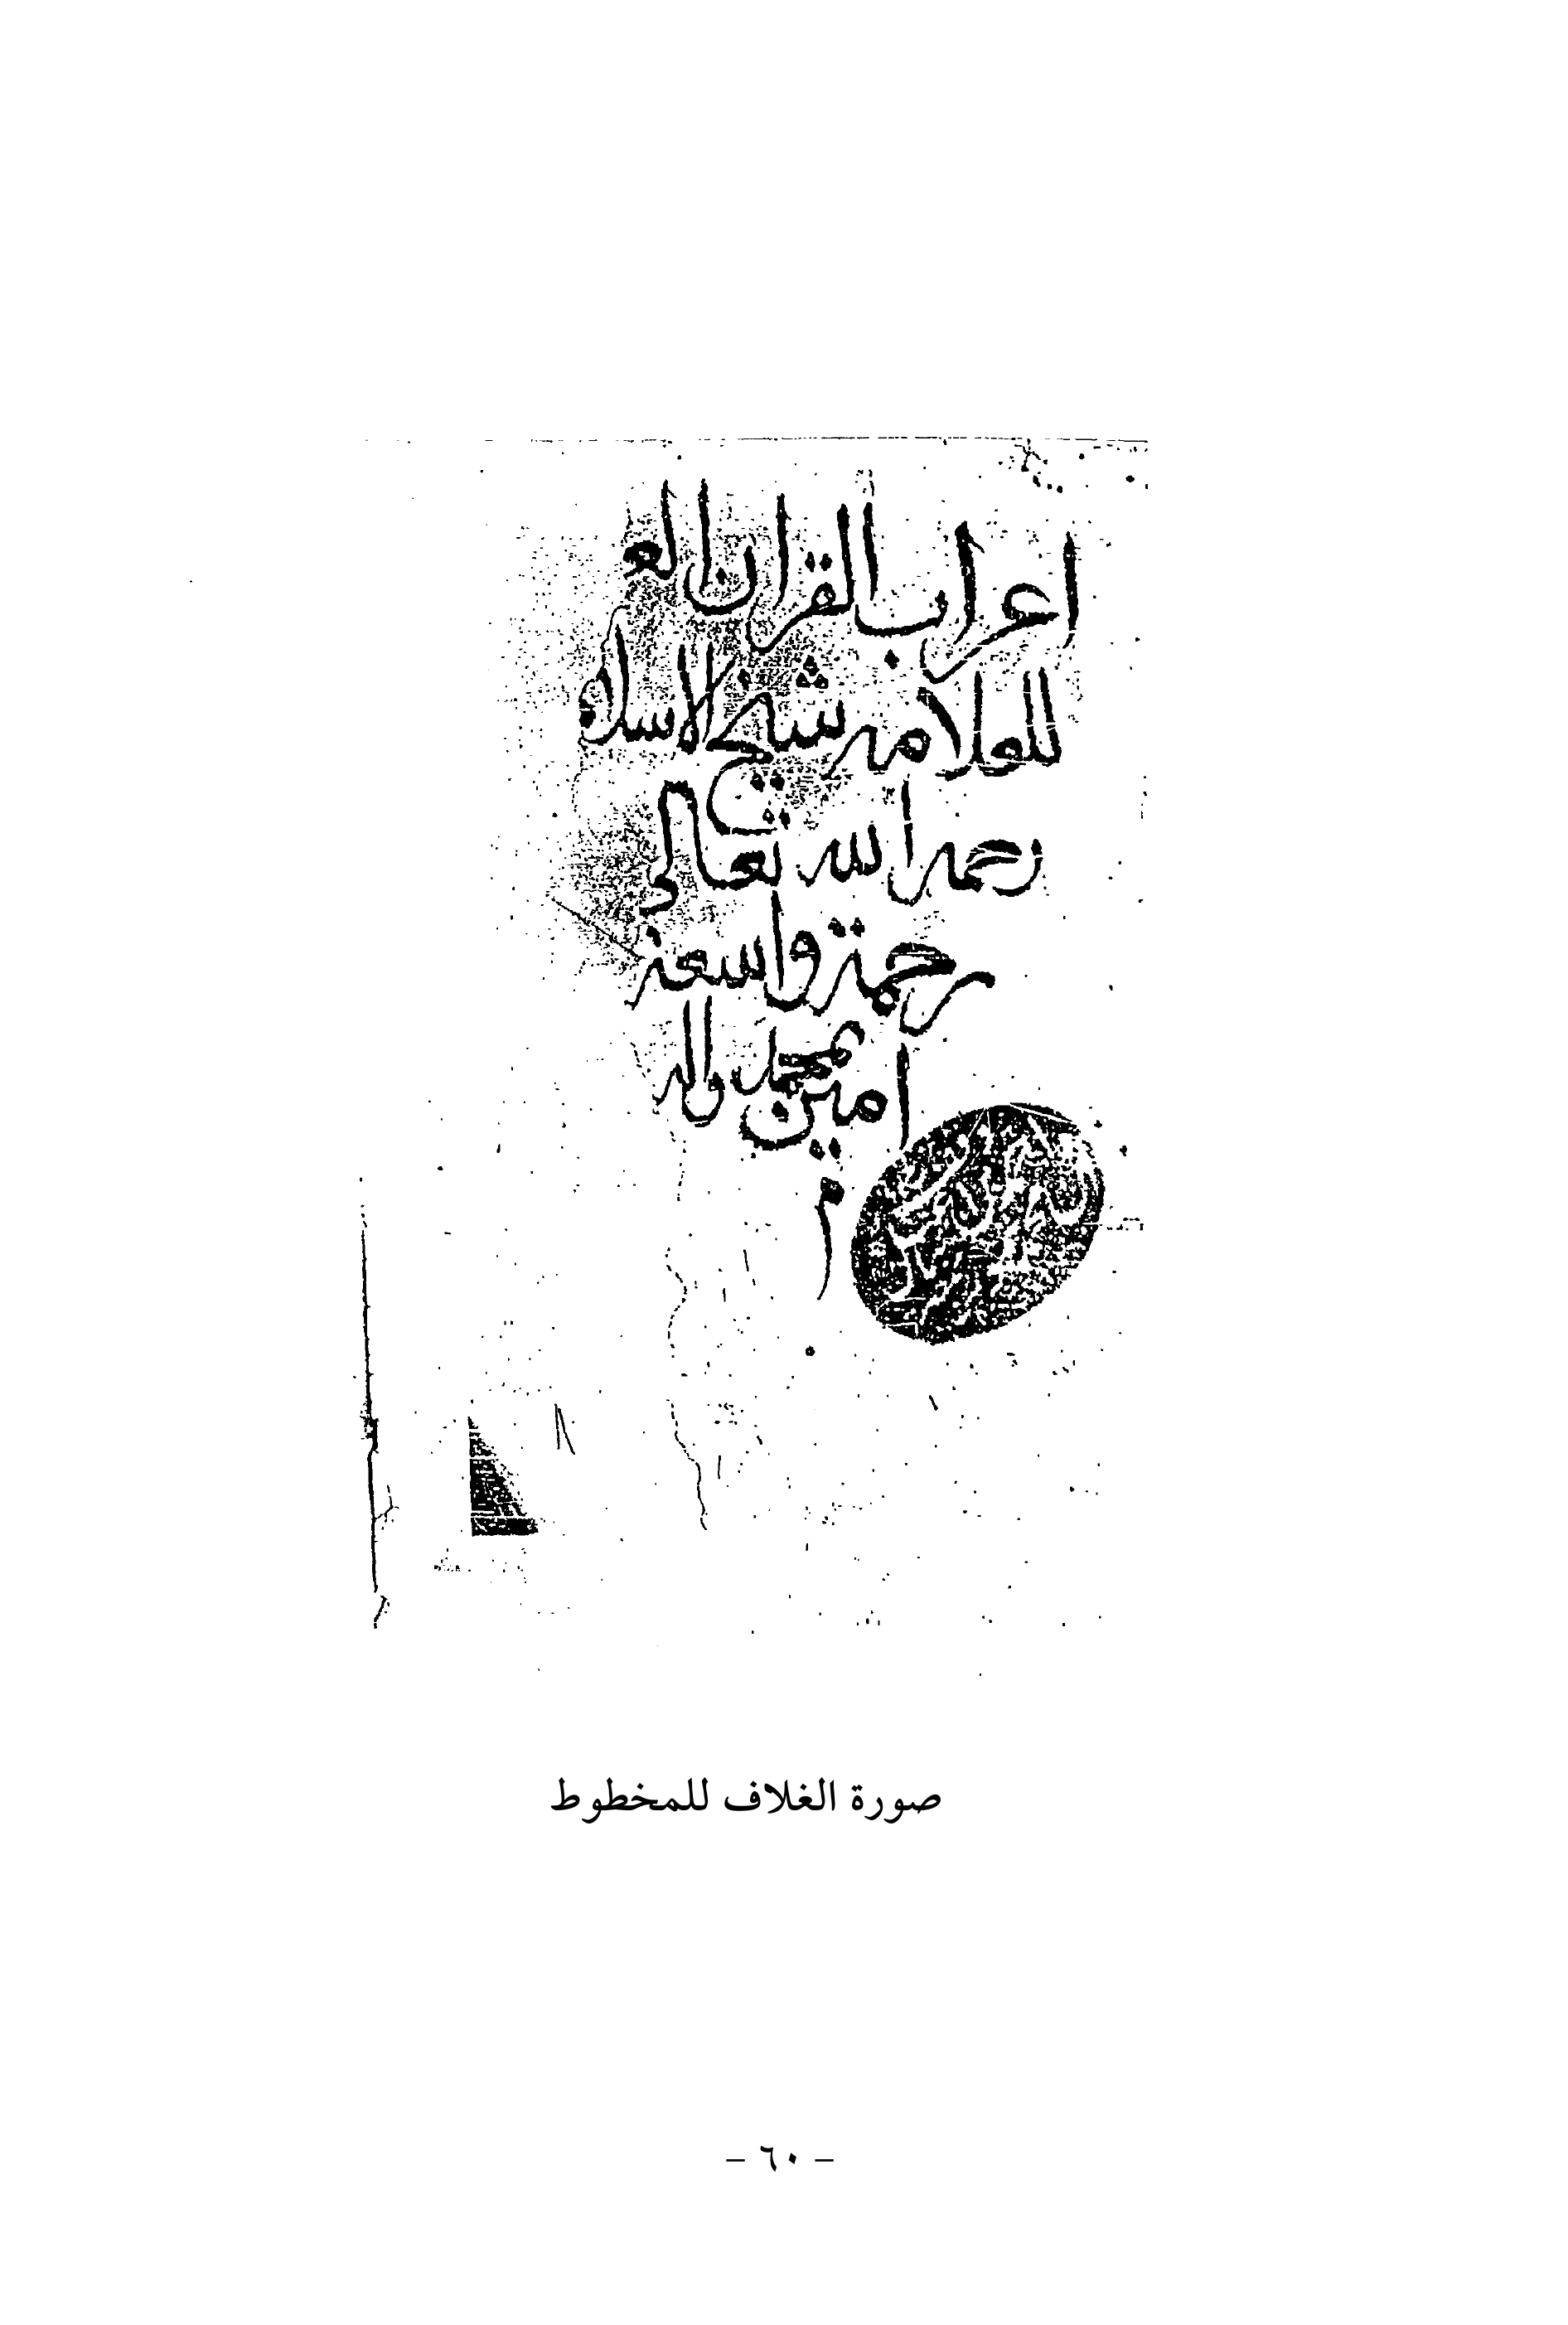 اعراب القران الع
للعلامه شيخ الاسلام
رحمه الله تعالى
رحمة واسعة
امين بمحمد واله
م
صورة الغلاف للمخطوط
– ٦٠ –